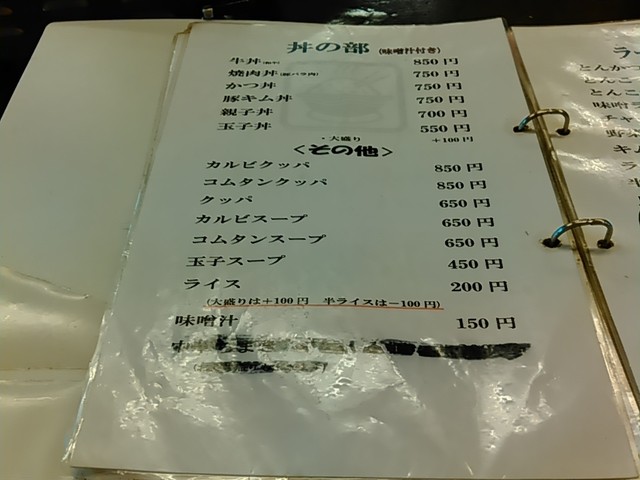 丼の部 (味噌汁付き)
牛丼 850円
焼肉丼(豚バラ肉) 750円
かつ丼 750円
豚キム丼 750円
親子丼 700円
玉子丼 550円
・大盛り +100円
<その他>
カルビクッパ 850円
コムタンクッパ 850円
クッパ 650円
カルビスープ 650円
コムタンスープ 650円
玉子スープ 450円
ライス 200円
(大盛りは+100円 半ライスは-100円)
味噌汁 150円
ラー
とんかつ
とんこ
とんこ
味噌ラ
チャ
野菜
キム